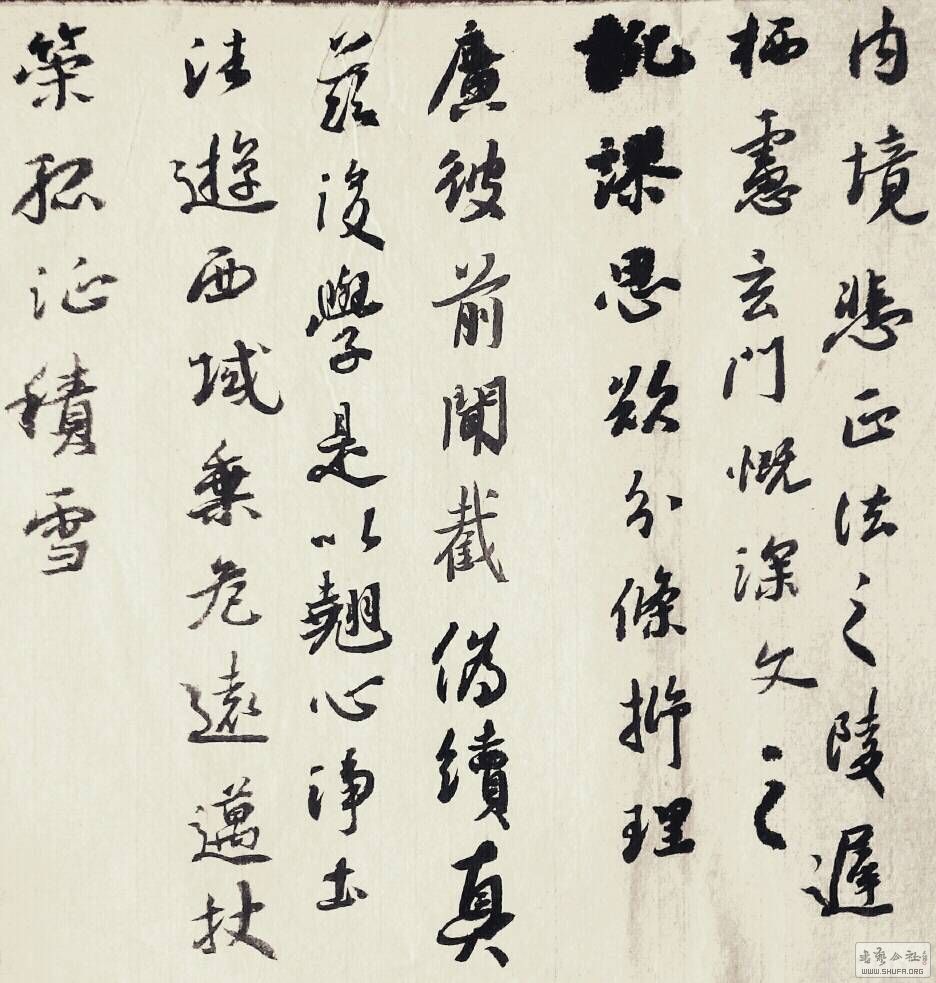 内境悲正法之陵遲
栖慮玄門慨深文之
訛謬思欲分條析理
廣彼前聞截偽續真
茲後學是以翹心淨土
往遊西域乘危遠邁杖
策孤征積雪
书艺公社
WWW.SHUFA.ORG